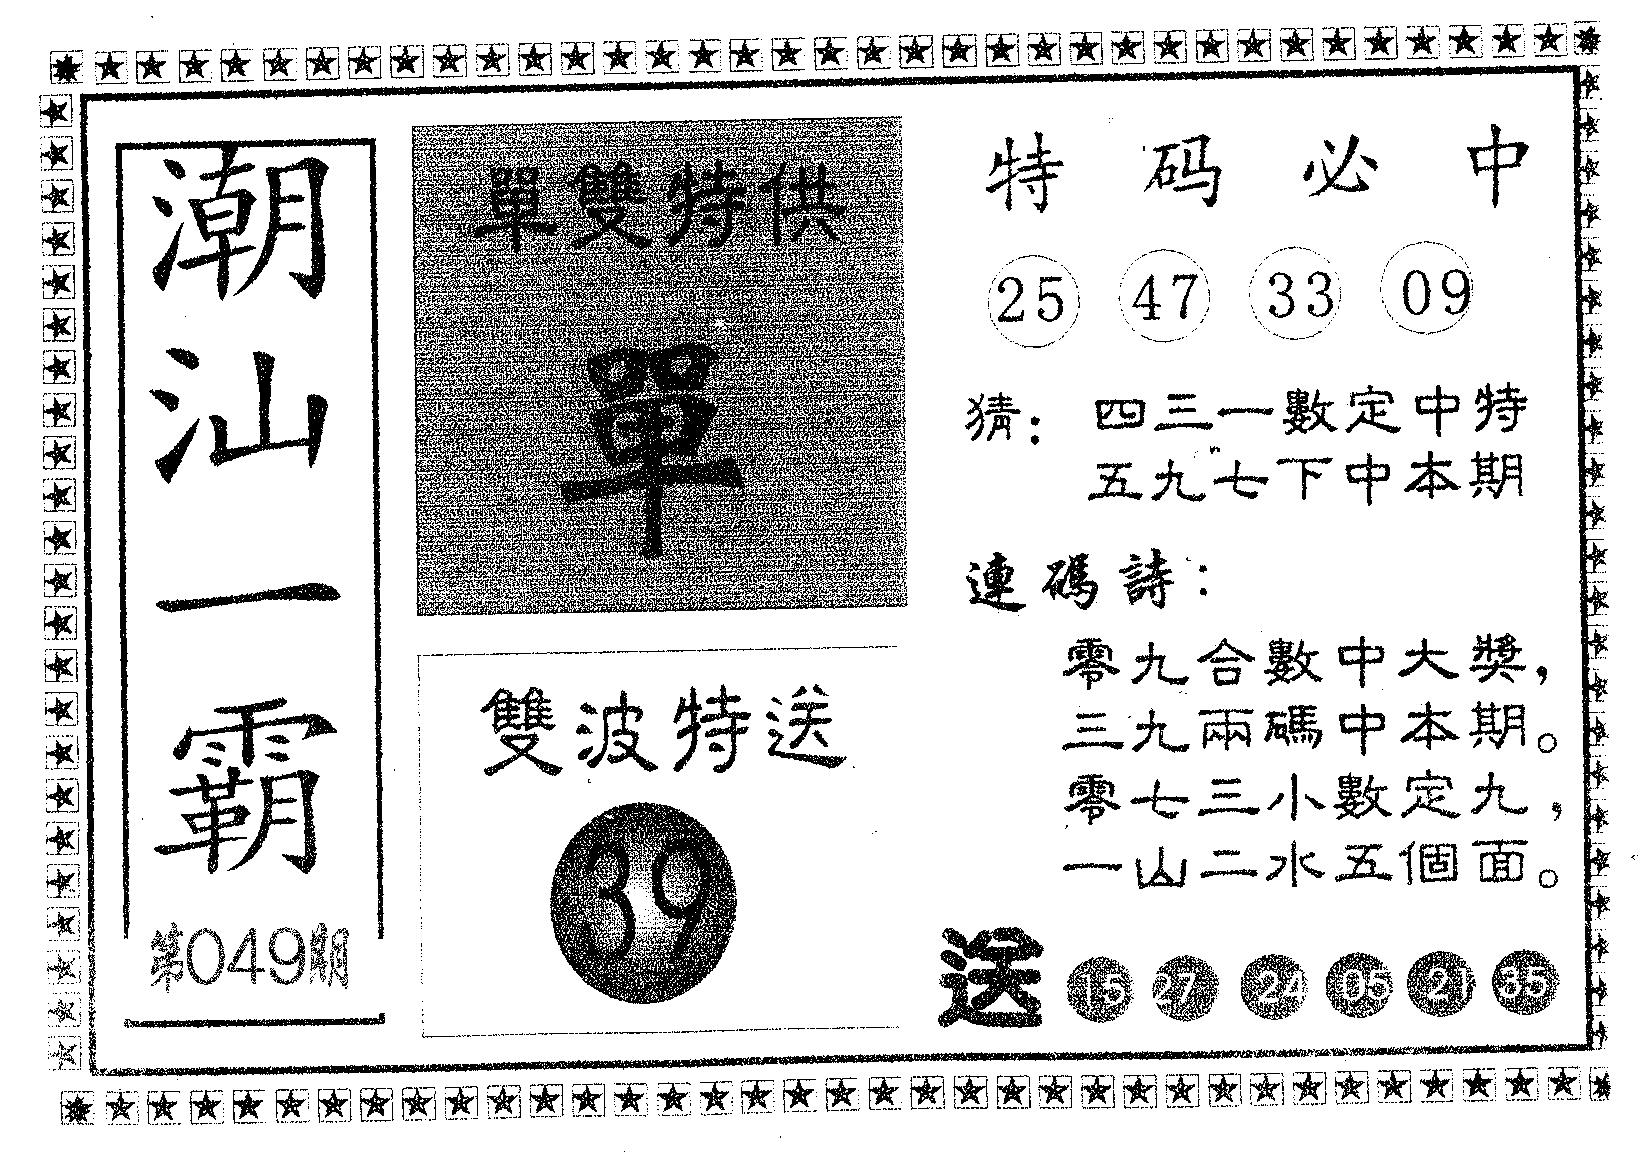 潮汕一霸
第049期
單雙特供
單
雙波特送
39
特码必中
25 47 33 09
猜：四三一數定中特
五九七下中本期
連碼詩：
零九合數中大獎，
三九兩碼中本期。
零七三小數定九，
一山二水五個面。
送 15 27 24 05 21 35